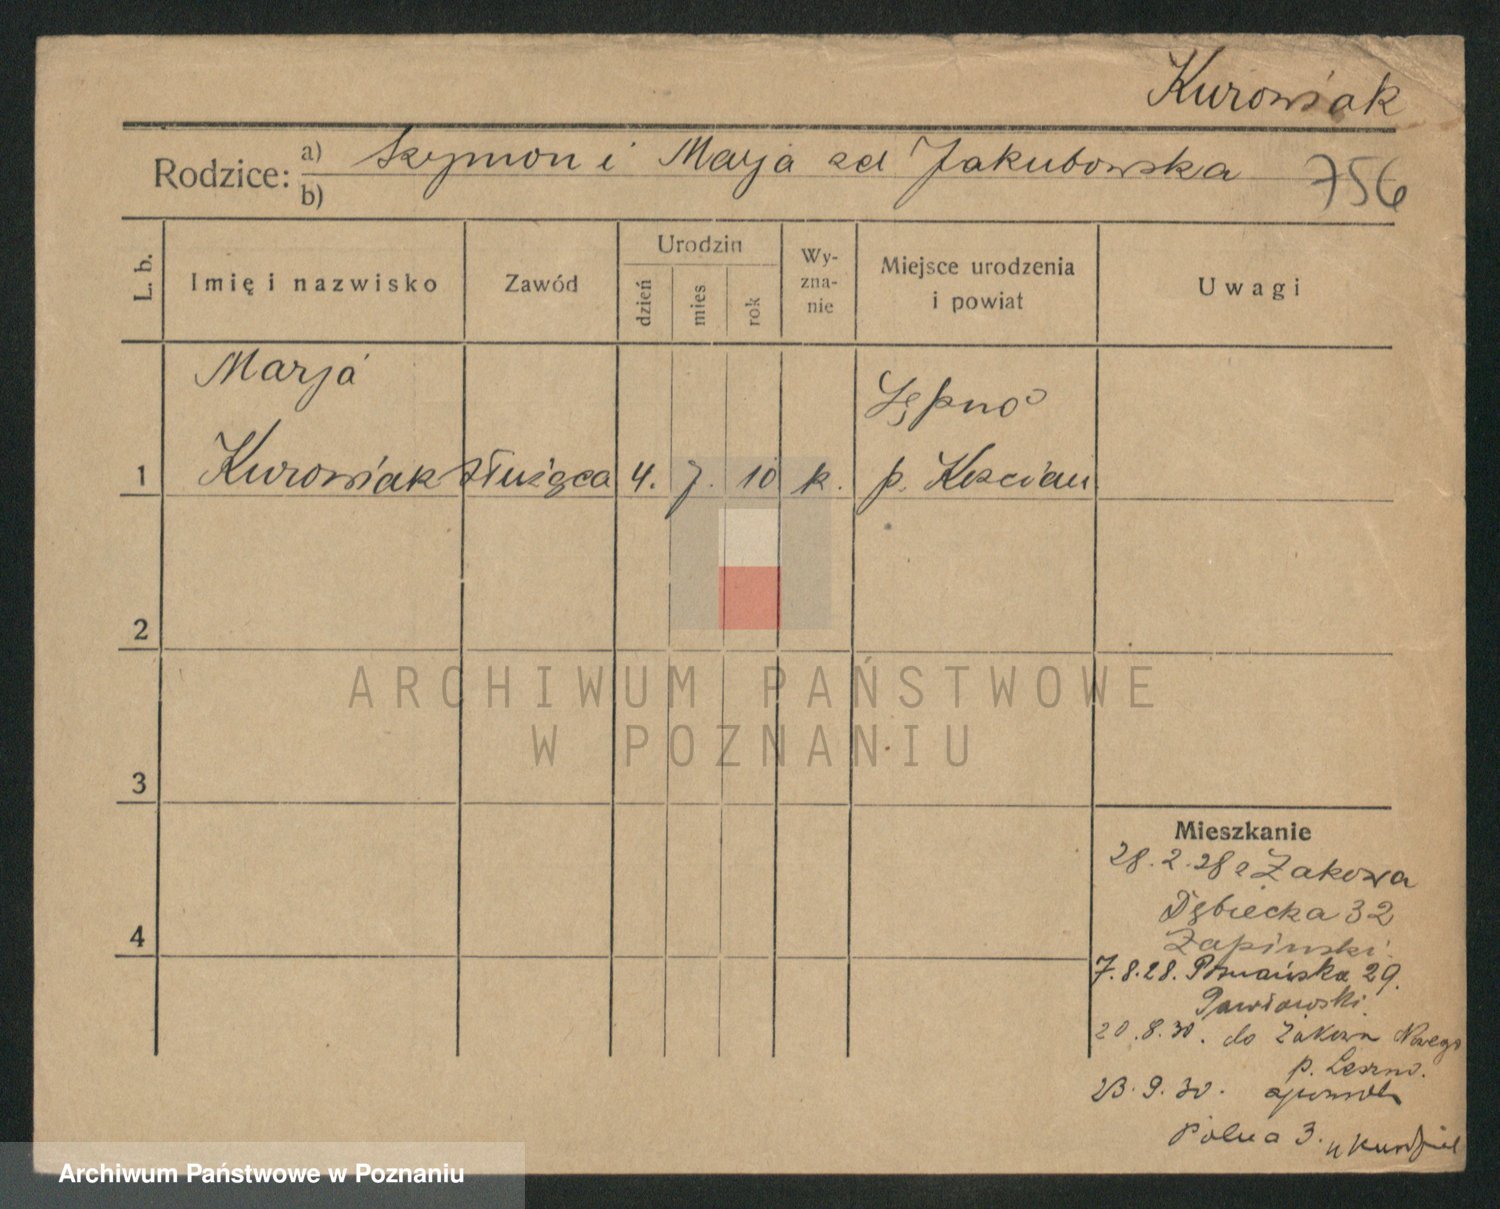 Kurowiak
Rodzice: a) Szymon i Marja zd Jakubowska
b)
756
L. b.
Imię i nazwisko
Zawód
Urodzin
dzień
mies
rok
Wy-
zna-
nie
Miejsce urodzenia
i powiat
Uwagi
Marja
1 Kurowiak służąca 4. 7. 10 k. p. Kościan
2
3
4
Mieszkanie
28.2.28 z Żakowa
Dębiecka 32
Łapiński
7.8.28. Poznańska 29.
Pawłowski
20.8.30. do Żakowa Nowego
p. Leszno.
23.9.30.
Polna 3. u
ARCHIWUM PAŃSTWOWE
W POZNANIU
Archiwum Państwowe w Poznaniu